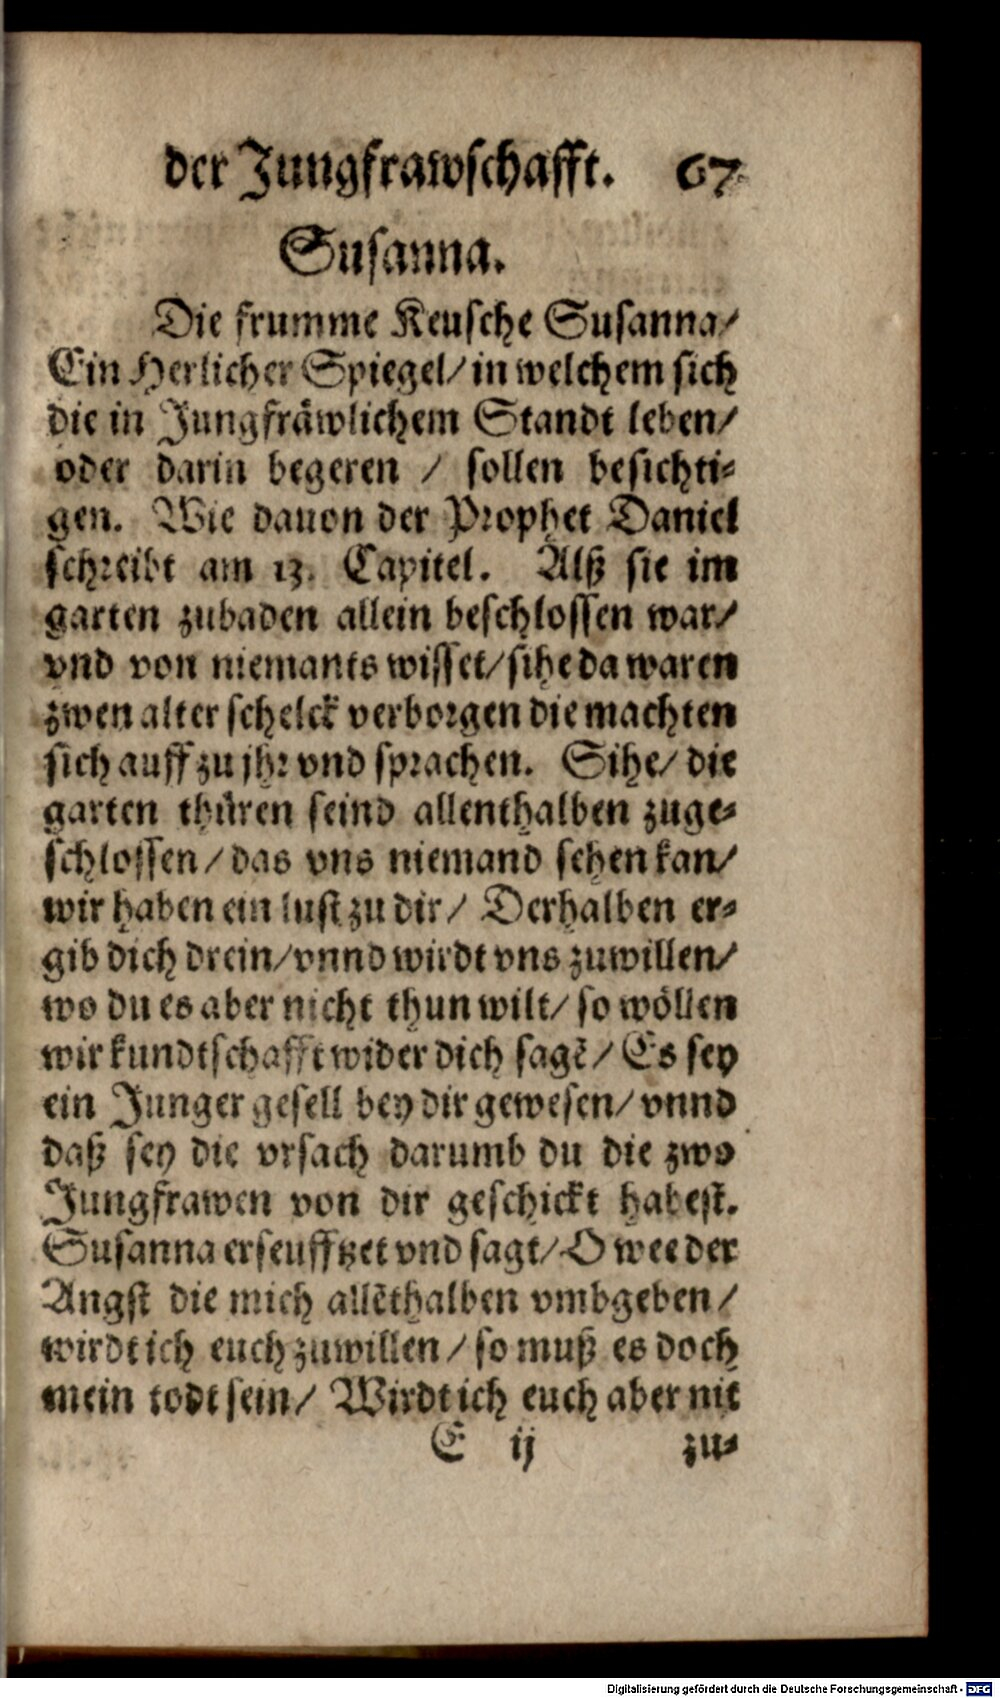 der Jungfrawschafft. 67
Susanna.
Die frumme Keusche Susanna/
Ein Herlicher Spiegel/ in welchem sich
die in Jungfräwlichem Standt leben/
oder darin begeren / sollen besichti-
gen. Wie dauon der Prophet Daniel
schreibt am 13. Capitel. Alß sie im
garten zubaden allein beschlossen war/
vnd von niemants wisset/ sihe da waren
zwen alter schelck verborgen die machten
sich auff zu jhr vnd sprachen. Sihe/ die
garten thüren seind allenthalben zuge-
schlossen/ das vns niemand sehen kan/
wir haben ein lust zu dir/ Derhalben er-
gib dich drein/ vnnd wirdt vns zuwillen/
wo du es aber nicht thun wilt/ so wöllen
wir kundtschafft wider dich sagē/ Es sey
ein Junger gesell bey dir gewesen/ vnnd
daß sey die vrsach darumb du die zwo
Jungfrawen von dir geschickt habest.
Susanna erseufftzet vnd sagt/ O wee der
Angst die mich allēthalben vmbgeben/
wirdt ich euch zuwillen/ so muß es doch
mein todt sein/ Wirdt ich euch aber nit
E ij zu-
Digitalisierung gefördert durch die Deutsche Forschungsgemeinschaft - DFG